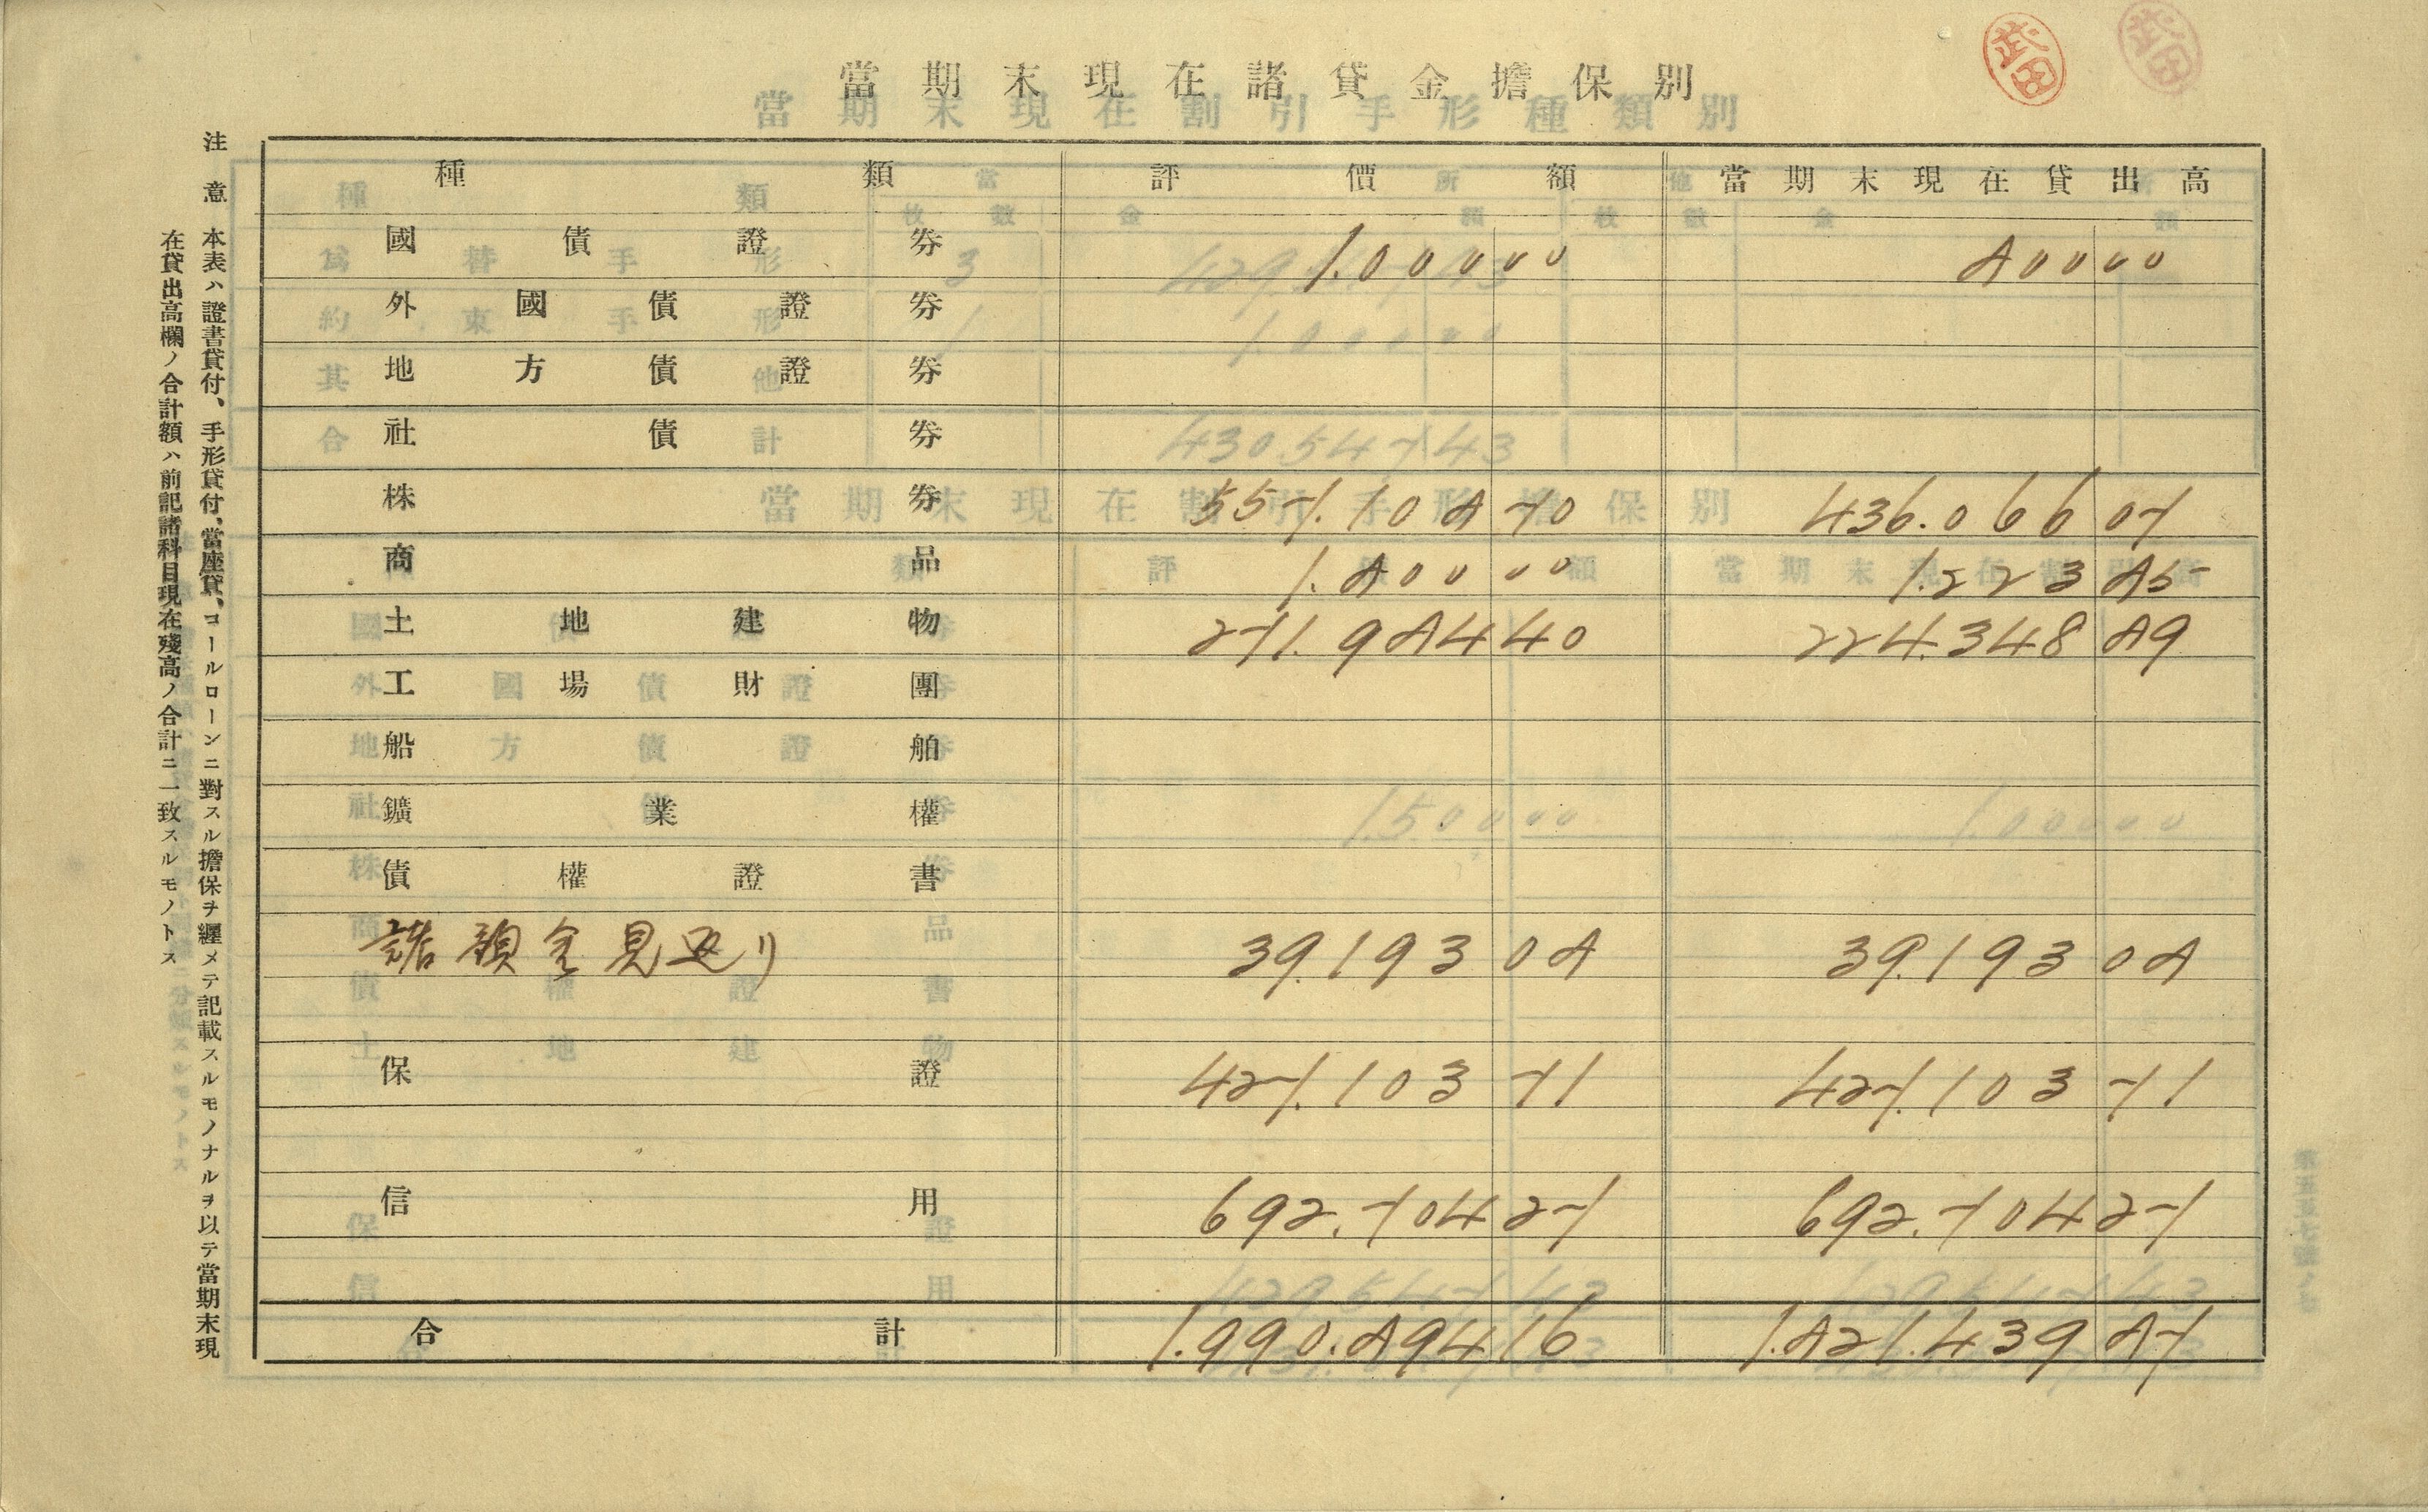 當期末現在諸貸金擔保別
武田
武田
種類 評價額 當期末現在貸出高
國債證券 1.000 00 800 00
外國債證券
地方債證券
社債券
株券 557.108 70 436.066 07
商品 1.800 00 1.223 85
土地建物 271.984 40 224.348 89
工場財團
船舶
鑛業權
債權證書
諸預金見返リ 39.193 08 39.193 08
保證 427.103 71 427.103 71
信用 692.704 27 692.704 27
合計 1.990.894 16 1.821.439 87
注意 本表ハ證書貸付、手形貸付、當座貸、コールローンニ對スル擔保ヲ纒メテ記載スルモノナルヲ以テ當期末現
在貸出高欄ノ合計額ハ前記諸科目現在殘高ノ合計ニ一致スルモノトス